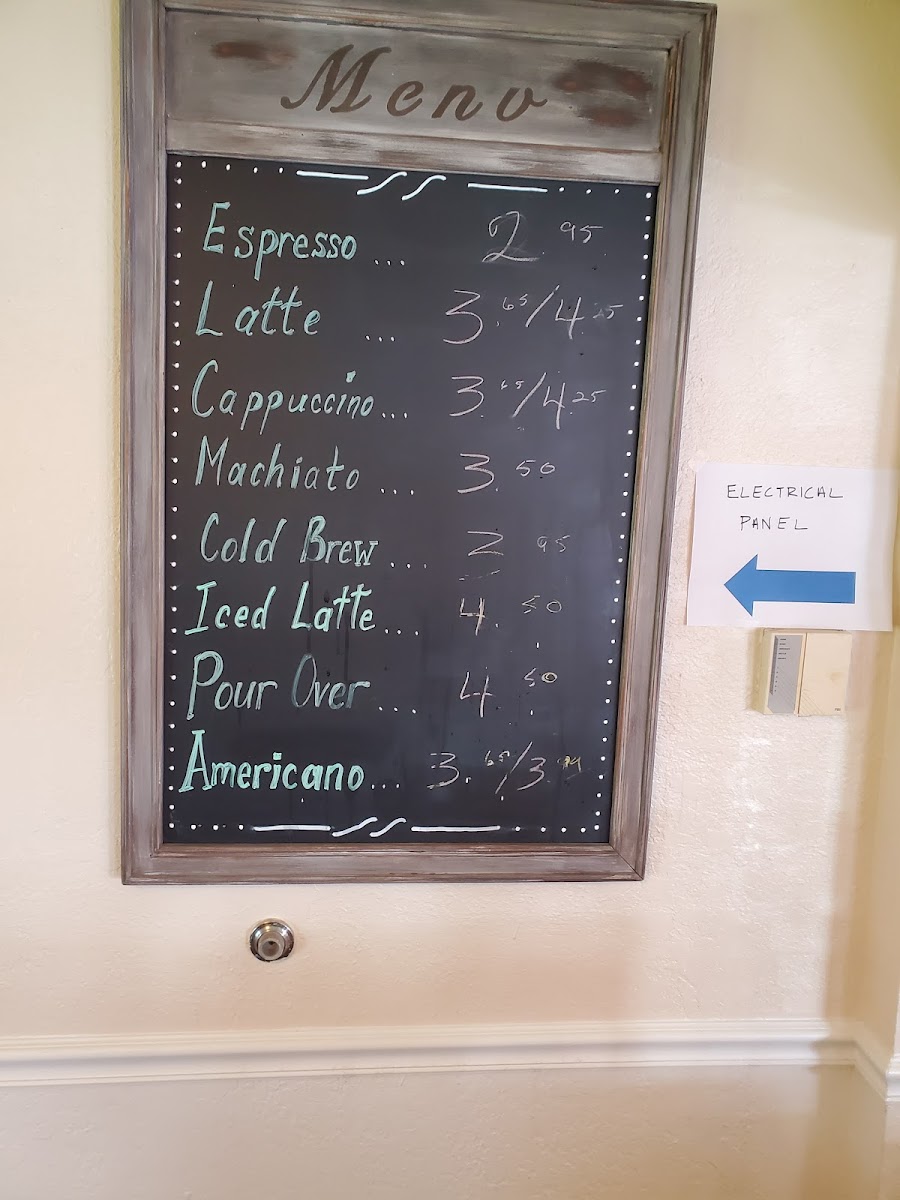 Menu
Espresso ... 2 95
Latte ... 3.65/4.25
Cappuccino... 3.65/4.25
Machiato ... 3.50
Cold Brew .... 2 95
Iced Latte... 4.50
Pour Over ... 4 50
Americano... 3.65/3.99
ELECTRICAL
PANEL